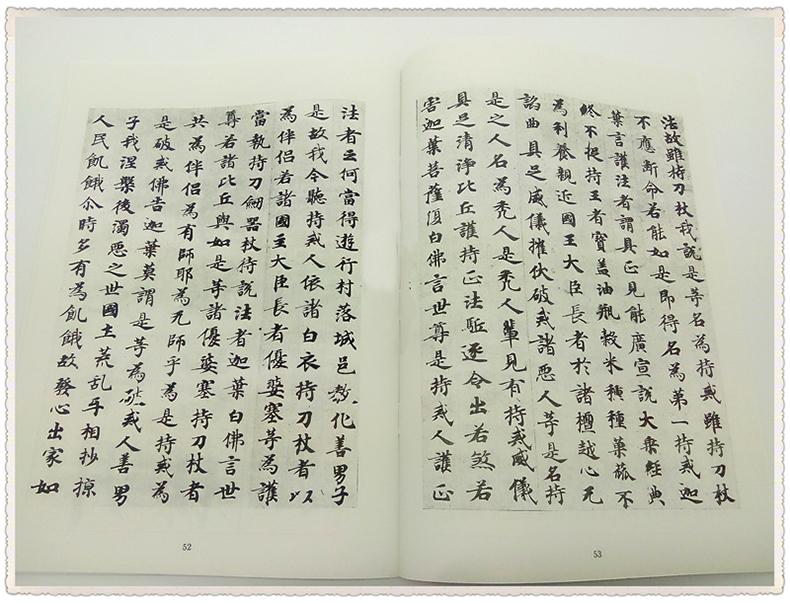 法故雖持刀杖我說是等名為持戒雖持刀杖
不應断命若能如是即得名為第一持戒迦
葉言護法者謂具正見能廣宣說大乗經典
終不捉持王者寶盖油瓶穀米種種菓蓏不
為利養親近國王大臣長者於諸檀越心无
諂曲具足威儀摧伏破戒諸惡人等是名持
是之人名為禿人是禿人輩見有持戒威儀
具足清淨比丘護持正法駈逐令出若煞若
害迦葉菩薩復白佛言世尊是持戒人護正
53
法者云何當得遊行村落城邑教化善男子
是故我今聽持戒人依諸白衣持刀杖者以
為伴侶若諸國王大臣長者優婆塞等為護
當執持刀劒器杖侍說法者迦葉白佛言世
尊若諸比丘與如是等諸優婆塞持刀杖者
共為伴侶為有師耶為无師乎為是持戒為
是破戒佛告迦葉莫謂是等為破戒人善男
子我涅槃後濁惡之世國土荒乱互相抄掠
人民飢餓尒時多有為飢餓故發心出家如
52